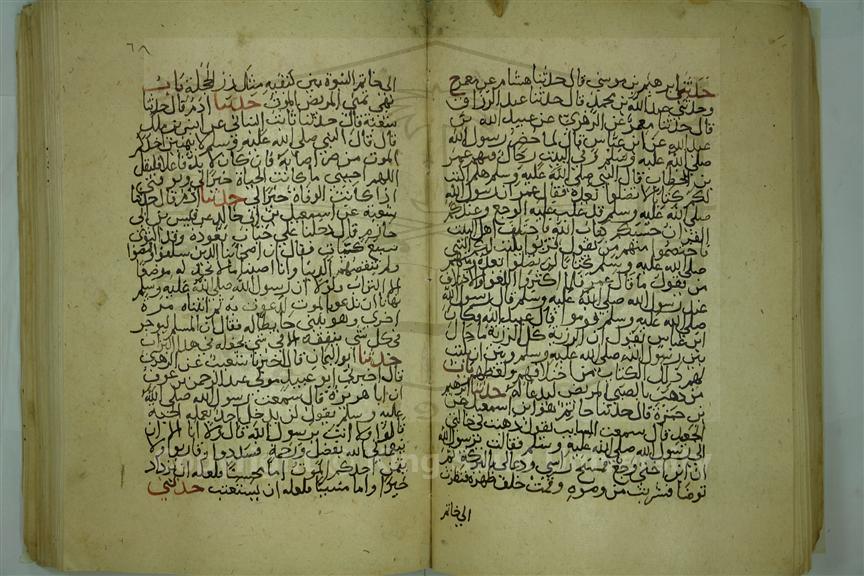 حدثني ابرهيم بن موسي قال حدثنا هشام عن معمر ح
وحدثني عبد الله بن محمد قال حدثنا عبد الرزاق
قال حدثنا معمر عن الزهري عن عبيد الله بن
عبد الله عن ابن عباس قال لما حضر رسول الله
صلي الله عليه وسلم وفي البيت رجال فيهم عمر
بن الخطاب قال النبي صلي الله عليه وسلم هلم اكتب
لكم كتابا لا تضلوا بعده فقال عمر ان رسول الله
صلي الله عليه وسلم قد غلب عليه الوجع وعندكم
القران حسبنا كتاب الله فاختلف اهل البيت
فاختصموا منهم من يقول قربوا يكتب لكم النبي
صلي الله عليه وسلم كتابا لن تضلوا بعده ومنهم
من يقول ما قال عمر فلما اكثروا اللغو والاختلاف
عند رسول الله صلي الله عليه وسلم قال رسول الله
صلي الله عليه وسلم قوموا قال عبيد الله وكان
ابن عباس يقول ان الرزية كل الرزية ما حال
بين رسول الله صلي الله عليه وسلم وبين ان يكتب
لهم ذلك الكتاب من اختلافهم ولغطهم باب
من ذهب بالصبي المريض ليدعا له حدثنا ابرهيم
بن حمزة قال حدثنا حاتم هو ابن اسمعيل عن
الجعيد قال سمعت السايب يقول ذهبت بي خالتي
الي رسول الله صلي الله عليه وسلم فقالت يرسول الله
ان ابن اختي وجع فمسح راسي ودعا لي بالبركة ثم
توضا فشربت من وضوه وقمت خلف ظهره فنظرت
الي خاتم
٦٨
الي خاتم النبوة بين كتفيه مثل زر الحجلة باب
نهي تمني المريض الموت حدثنا ادم قال حدثنا
شعبة قال حدثنا ثابت البناني عن انس بن ملك
قال قال النبي صلي الله عليه وسلم لا يتمنين احدكم
الموت من ضر اصابه فان كان لا بد فاعلا فليقل
اللهم احيني ما كانت الحياة خيرا لي وتوفني
اذا كانت الوفاة خيرا لي حدثنا ادم قال حدثنا
شعبة عن اسمعيل بن ابي خالد عن قيس بن ابي
حازم قال دخلنا علي خباب نعوده وقد اكتوي
سبع كيات فقال ان اصحابنا الذين سلفوا مضوا
ولم تنقصهم الدنيا وانا اصبنا ما لا نجد له موضعا
الا التراب ولولا ان رسول الله صلي الله عليه وسلم
نهانا ان ندعو بالموت لدعوت به ثم اتيناه مرة
اخري وهو يبني حايطا له فقال ان المسلم ليوجر
في كل شي ينفقه الا في شي يجعله في هذا التراب
حدثنا ابو اليمان قال اخبرنا شعيب عن الزهري
قال اخبرني ابو عبيد مولي عبد الرحمن بن عوف
ان ابا هريرة قال سمعت رسول الله صلي الله
عليه وسلم يقول لن يدخل احدا عمله الجنة
قالوا ولا انت يرسول الله قال ولا انا الا ان
يتغمدني الله بفضل ورحمة فسددوا وقاربوا ولا
يتمني احدكم الموت اما محسنا فلعله ان يزداد
خيرا واما مسيئا فلعله ان يستعتب حدثني